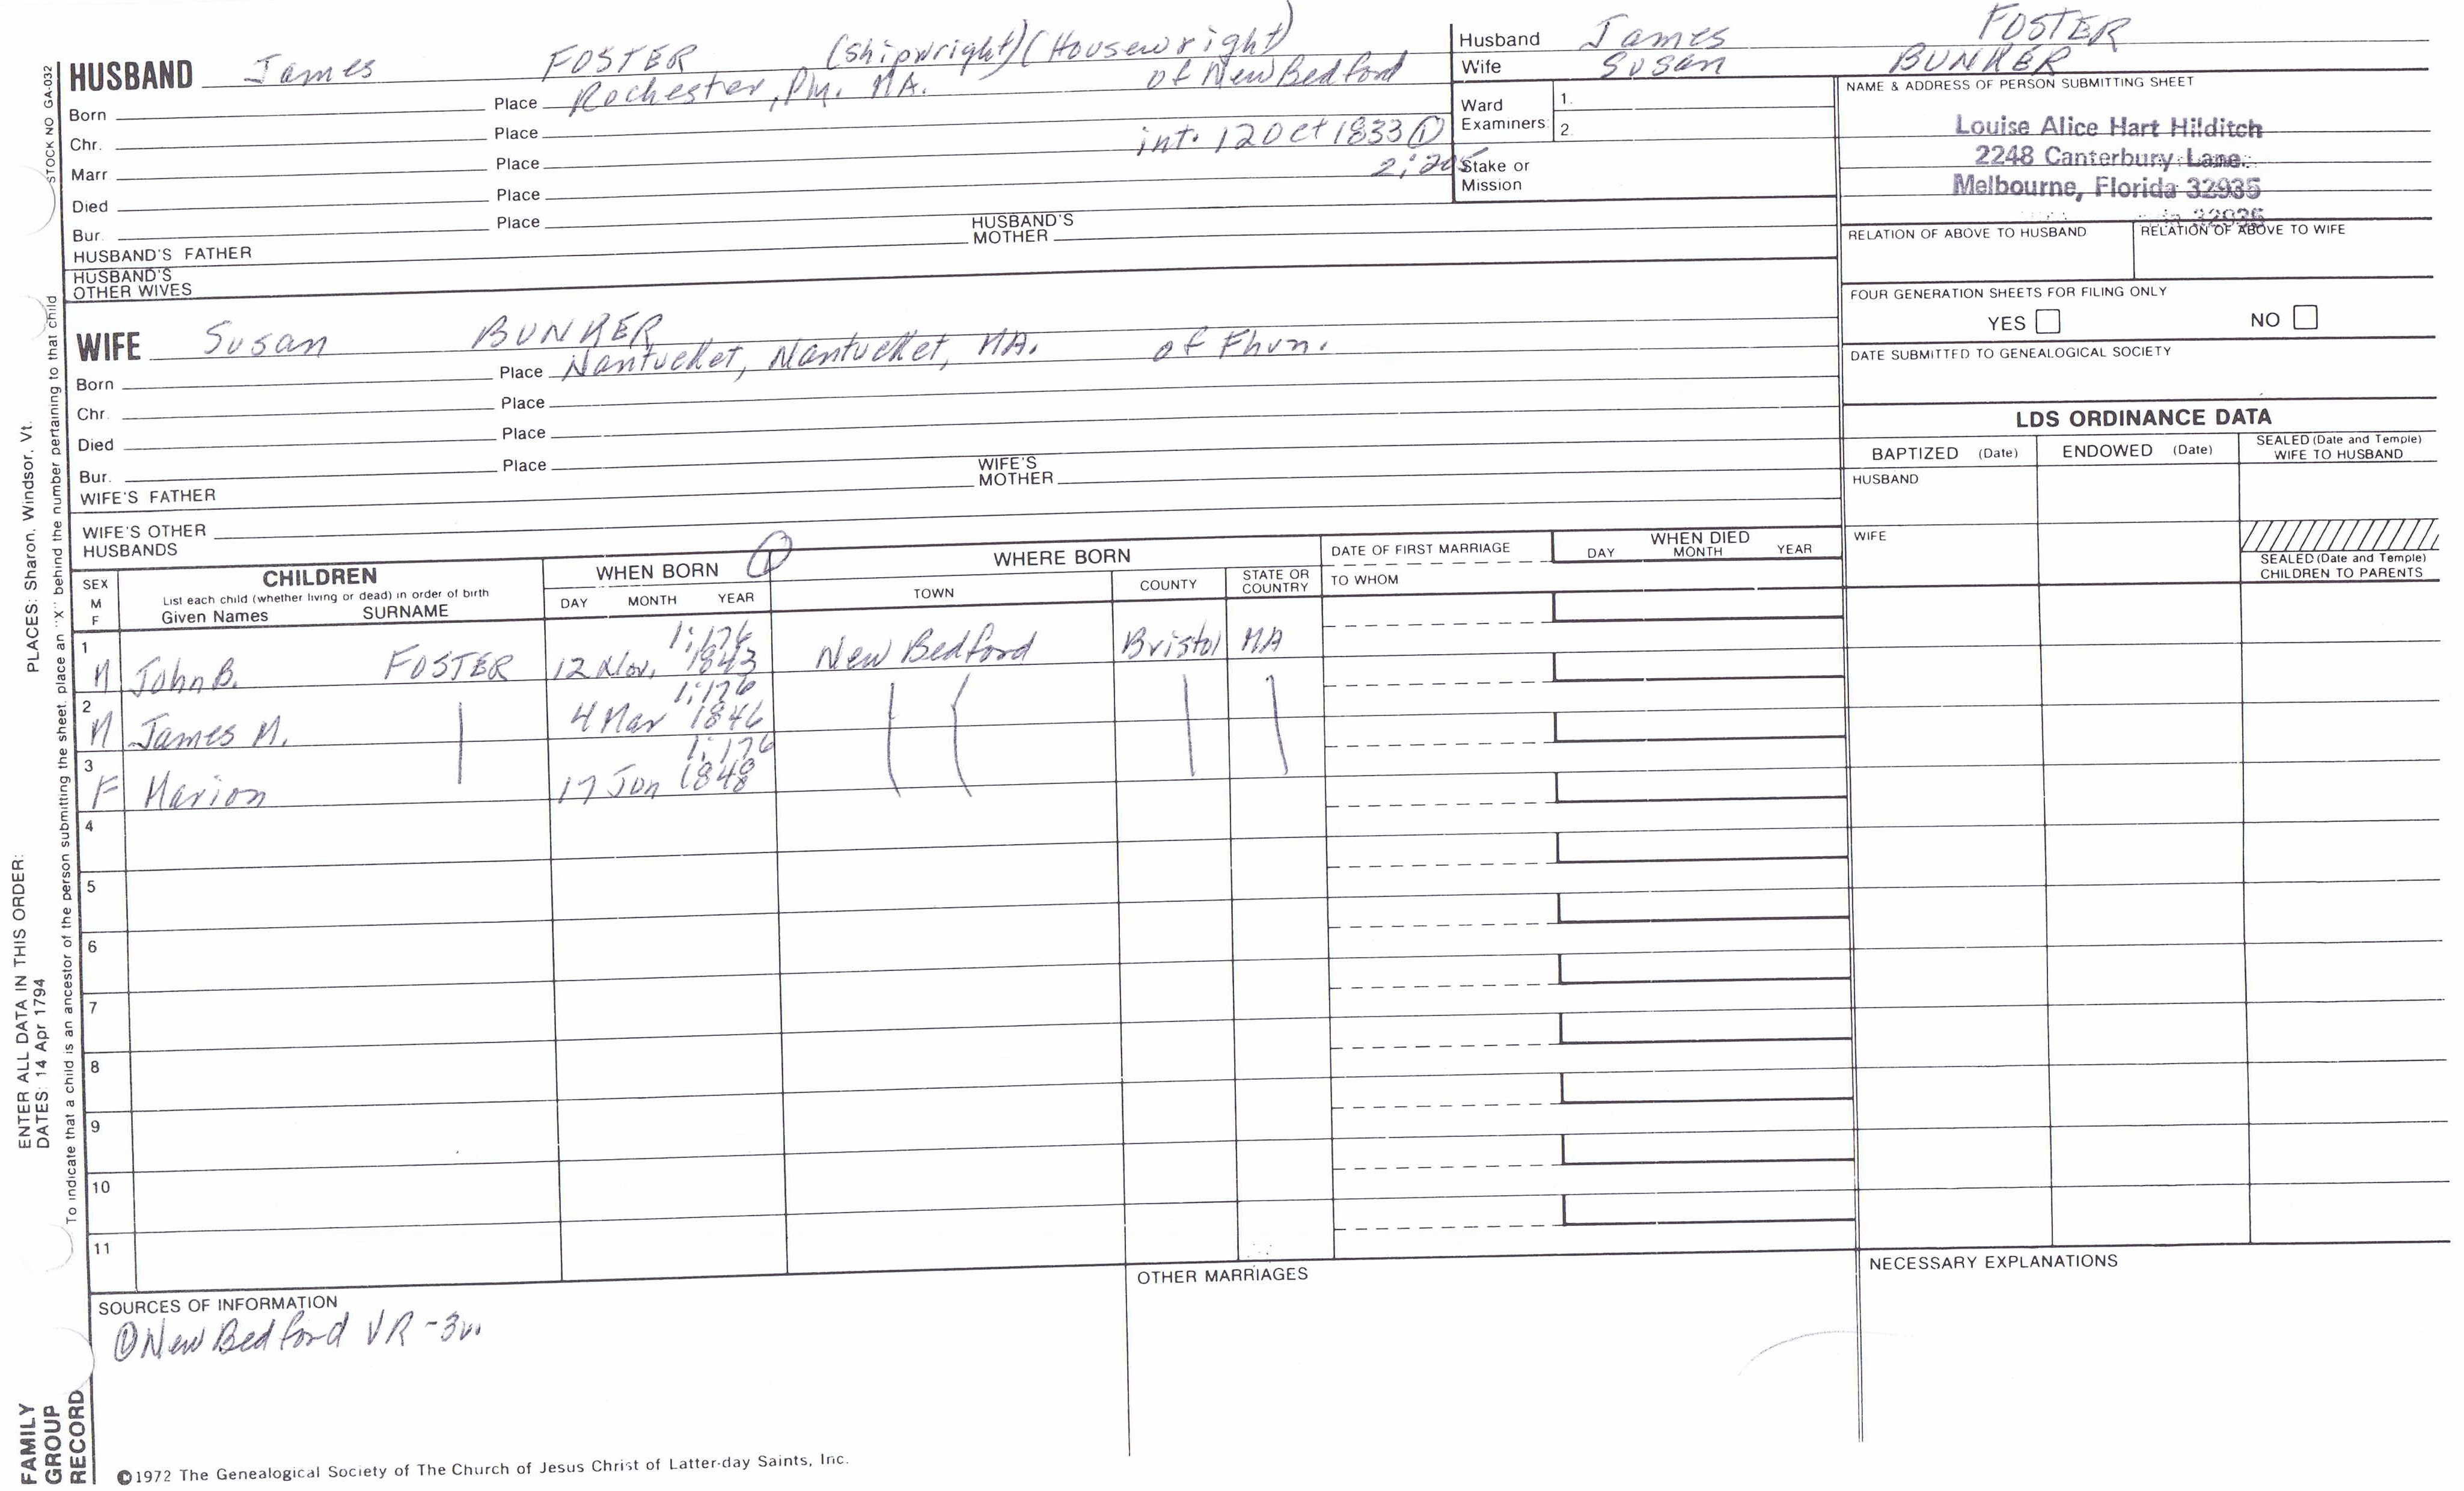 STOCK NO GA-032
HUSBAND James FOSTER (Shipwright) (Housewright)
Born Place Rochester, Ply. MA. of New Bedford
Chr. Place
Marr Place int. 12 Oct 1833 ①
2:205
Died Place
Bur. Place
HUSBAND'S FATHER HUSBAND'S MOTHER
HUSBAND'S OTHER WIVES
WIFE Susan BUNKER
Born Place Nantucket, Nantucket, MA. of Fhvn.
Chr. Place
Died Place
Bur. Place
WIFE'S FATHER WIFE'S MOTHER
WIFE'S OTHER HUSBANDS
Husband James FOSTER
Wife Susan BUNKER
Ward Examiners: 1.
2.
Stake or Mission
NAME & ADDRESS OF PERSON SUBMITTING SHEET
Louise Alice Hart Hilditch
2248 Canterbury Lane.
Melbourne, Florida 32935
32935
RELATION OF ABOVE TO HUSBAND RELATION OF ABOVE TO WIFE
FOUR GENERATION SHEETS FOR FILING ONLY
YES NO
DATE SUBMITTED TO GENEALOGICAL SOCIETY
LDS ORDINANCE DATA
BAPTIZED (Date) ENDOWED (Date) SEALED (Date and Temple) WIFE TO HUSBAND
HUSBAND
WIFE
SEALED (Date and Temple) CHILDREN TO PARENTS
SEX M F
CHILDREN
List each child (whether living or dead) in order of birth
Given Names SURNAME
WHEN BORN ①
DAY MONTH YEAR
WHERE BORN
TOWN COUNTY STATE OR COUNTRY
DATE OF FIRST MARRIAGE
TO WHOM
WHEN DIED
DAY MONTH YEAR
1:176
1 M John B. FOSTER 12 Nov. 1843 New Bedford Bristol MA
1:176
2 M James M. 4 Mar 1846
1:176
3 F Marion 17 Jun 1848
4
5
6
7
8
9
10
11
SOURCES OF INFORMATION
① New Bedford VR - 3v.
OTHER MARRIAGES
NECESSARY EXPLANATIONS
©1972 The Genealogical Society of The Church of Jesus Christ of Latter-day Saints, Inc.
FAMILY
GROUP
RECORD
ENTER ALL DATA IN THIS ORDER:
DATES: 14 Apr 1794
PLACES: Sharon, Windsor, Vt.
To indicate that a child is an ancestor of the person submitting the sheet, place an "X" behind the number pertaining to that child